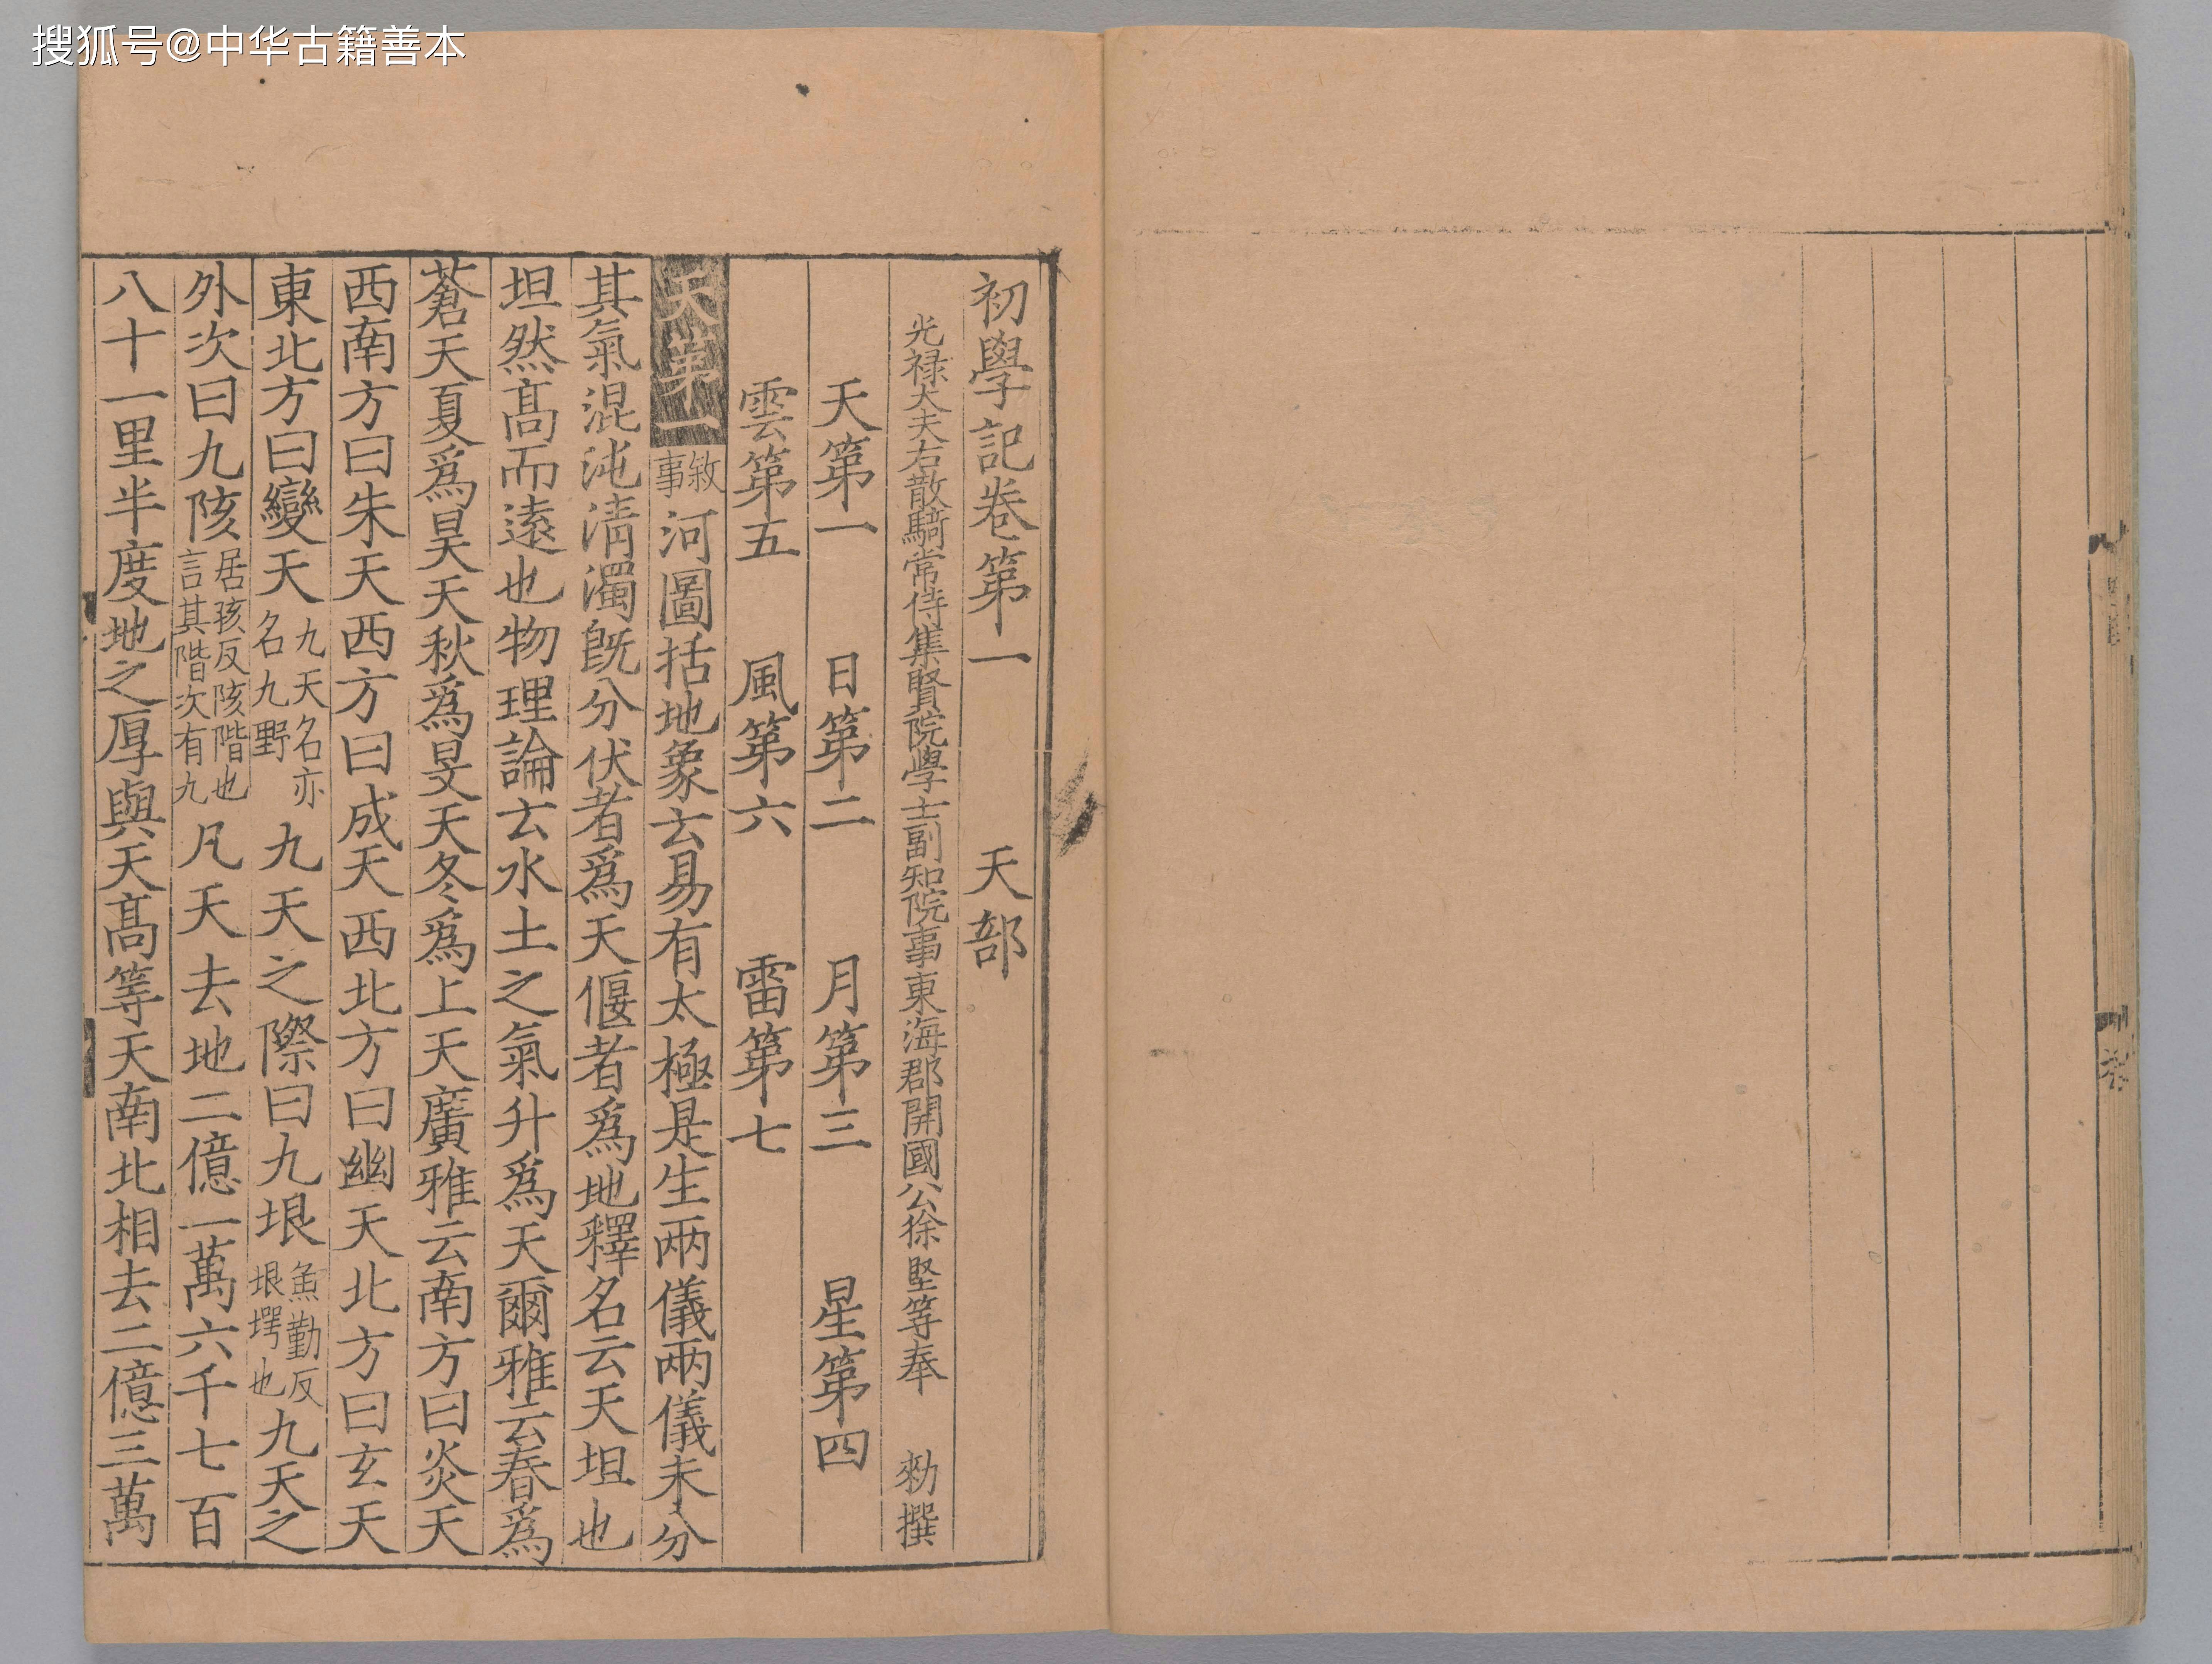 搜狐号@中华古籍善本
初學記卷第一 天部
光禄大夫右散騎常侍集賢院學士副知院事東海郡開國公徐堅等奉 勑撰
天第一 日第二 月第三 星第四
雲第五 風第六 雷第七
天第一 敘事 河圖括地象云易有太極是生兩儀兩儀未分
其氣混沌清濁旣分伏者爲天偃者爲地釋名云天坦也
坦然髙而遠也物理論云水土之氣升爲天爾雅云春爲
蒼天夏爲昊天秋爲旻天冬爲上天廣雅云南方曰炎天
西南方曰朱天西方曰成天西北方曰幽天北方曰玄天
東北方曰變天 九天名亦名九野 九天之際曰九垠 魚勤反垠堮也 九天之
外次曰九陔 居孩反陔階也言其階次有九 凡天去地二億一萬六千七百
八十一里半度地之厚與天髙等天南北相去二億三萬